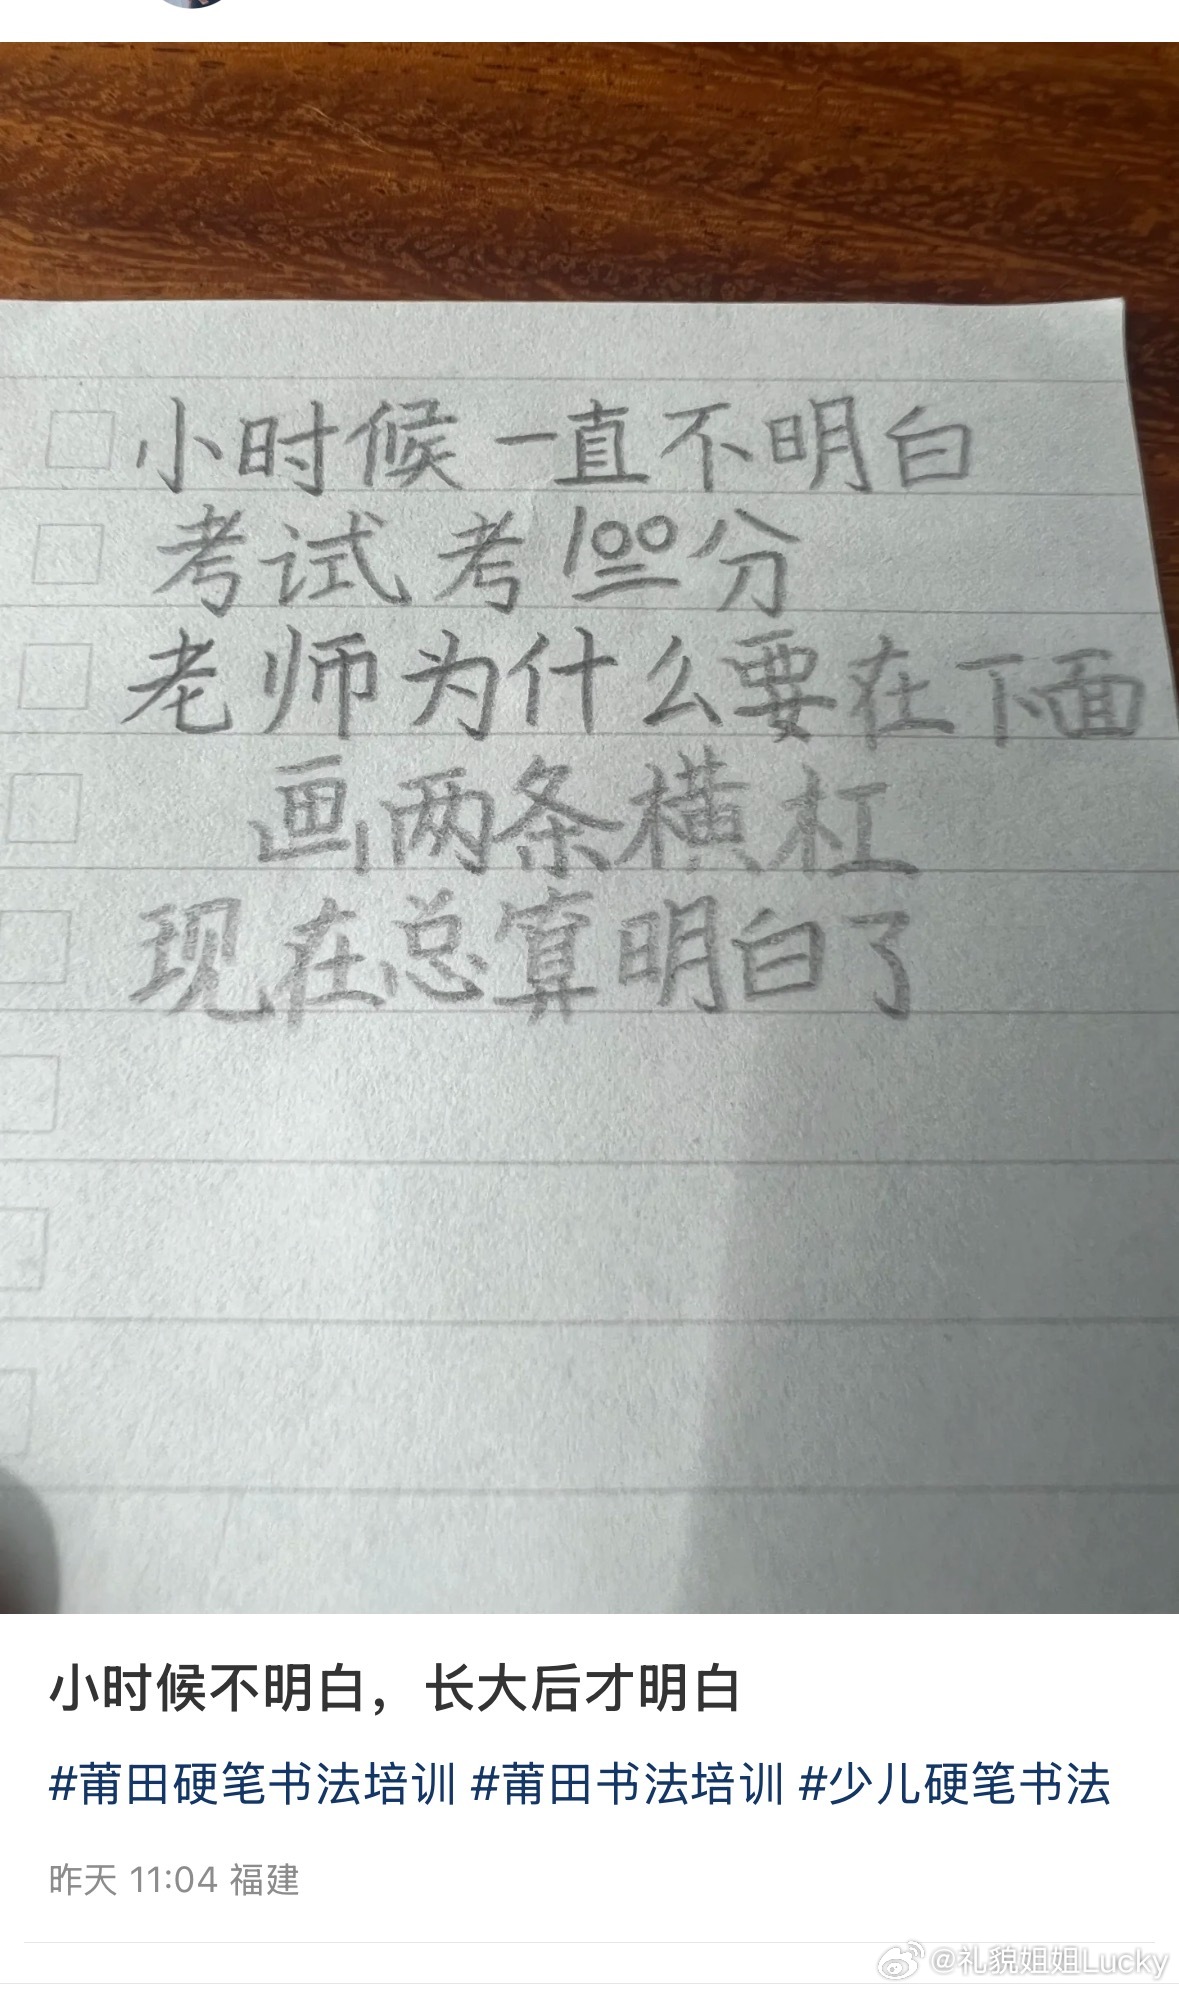 小时候一直不明白
考试考100分
老师为什么要在下面
画两条横杠
现在总算明白了
小时候不明白，长大后才明白
#莆田硬笔书法培训 #莆田书法培训 #少儿硬笔书法
昨天 11:04 福建
@礼貌姐姐Lucky